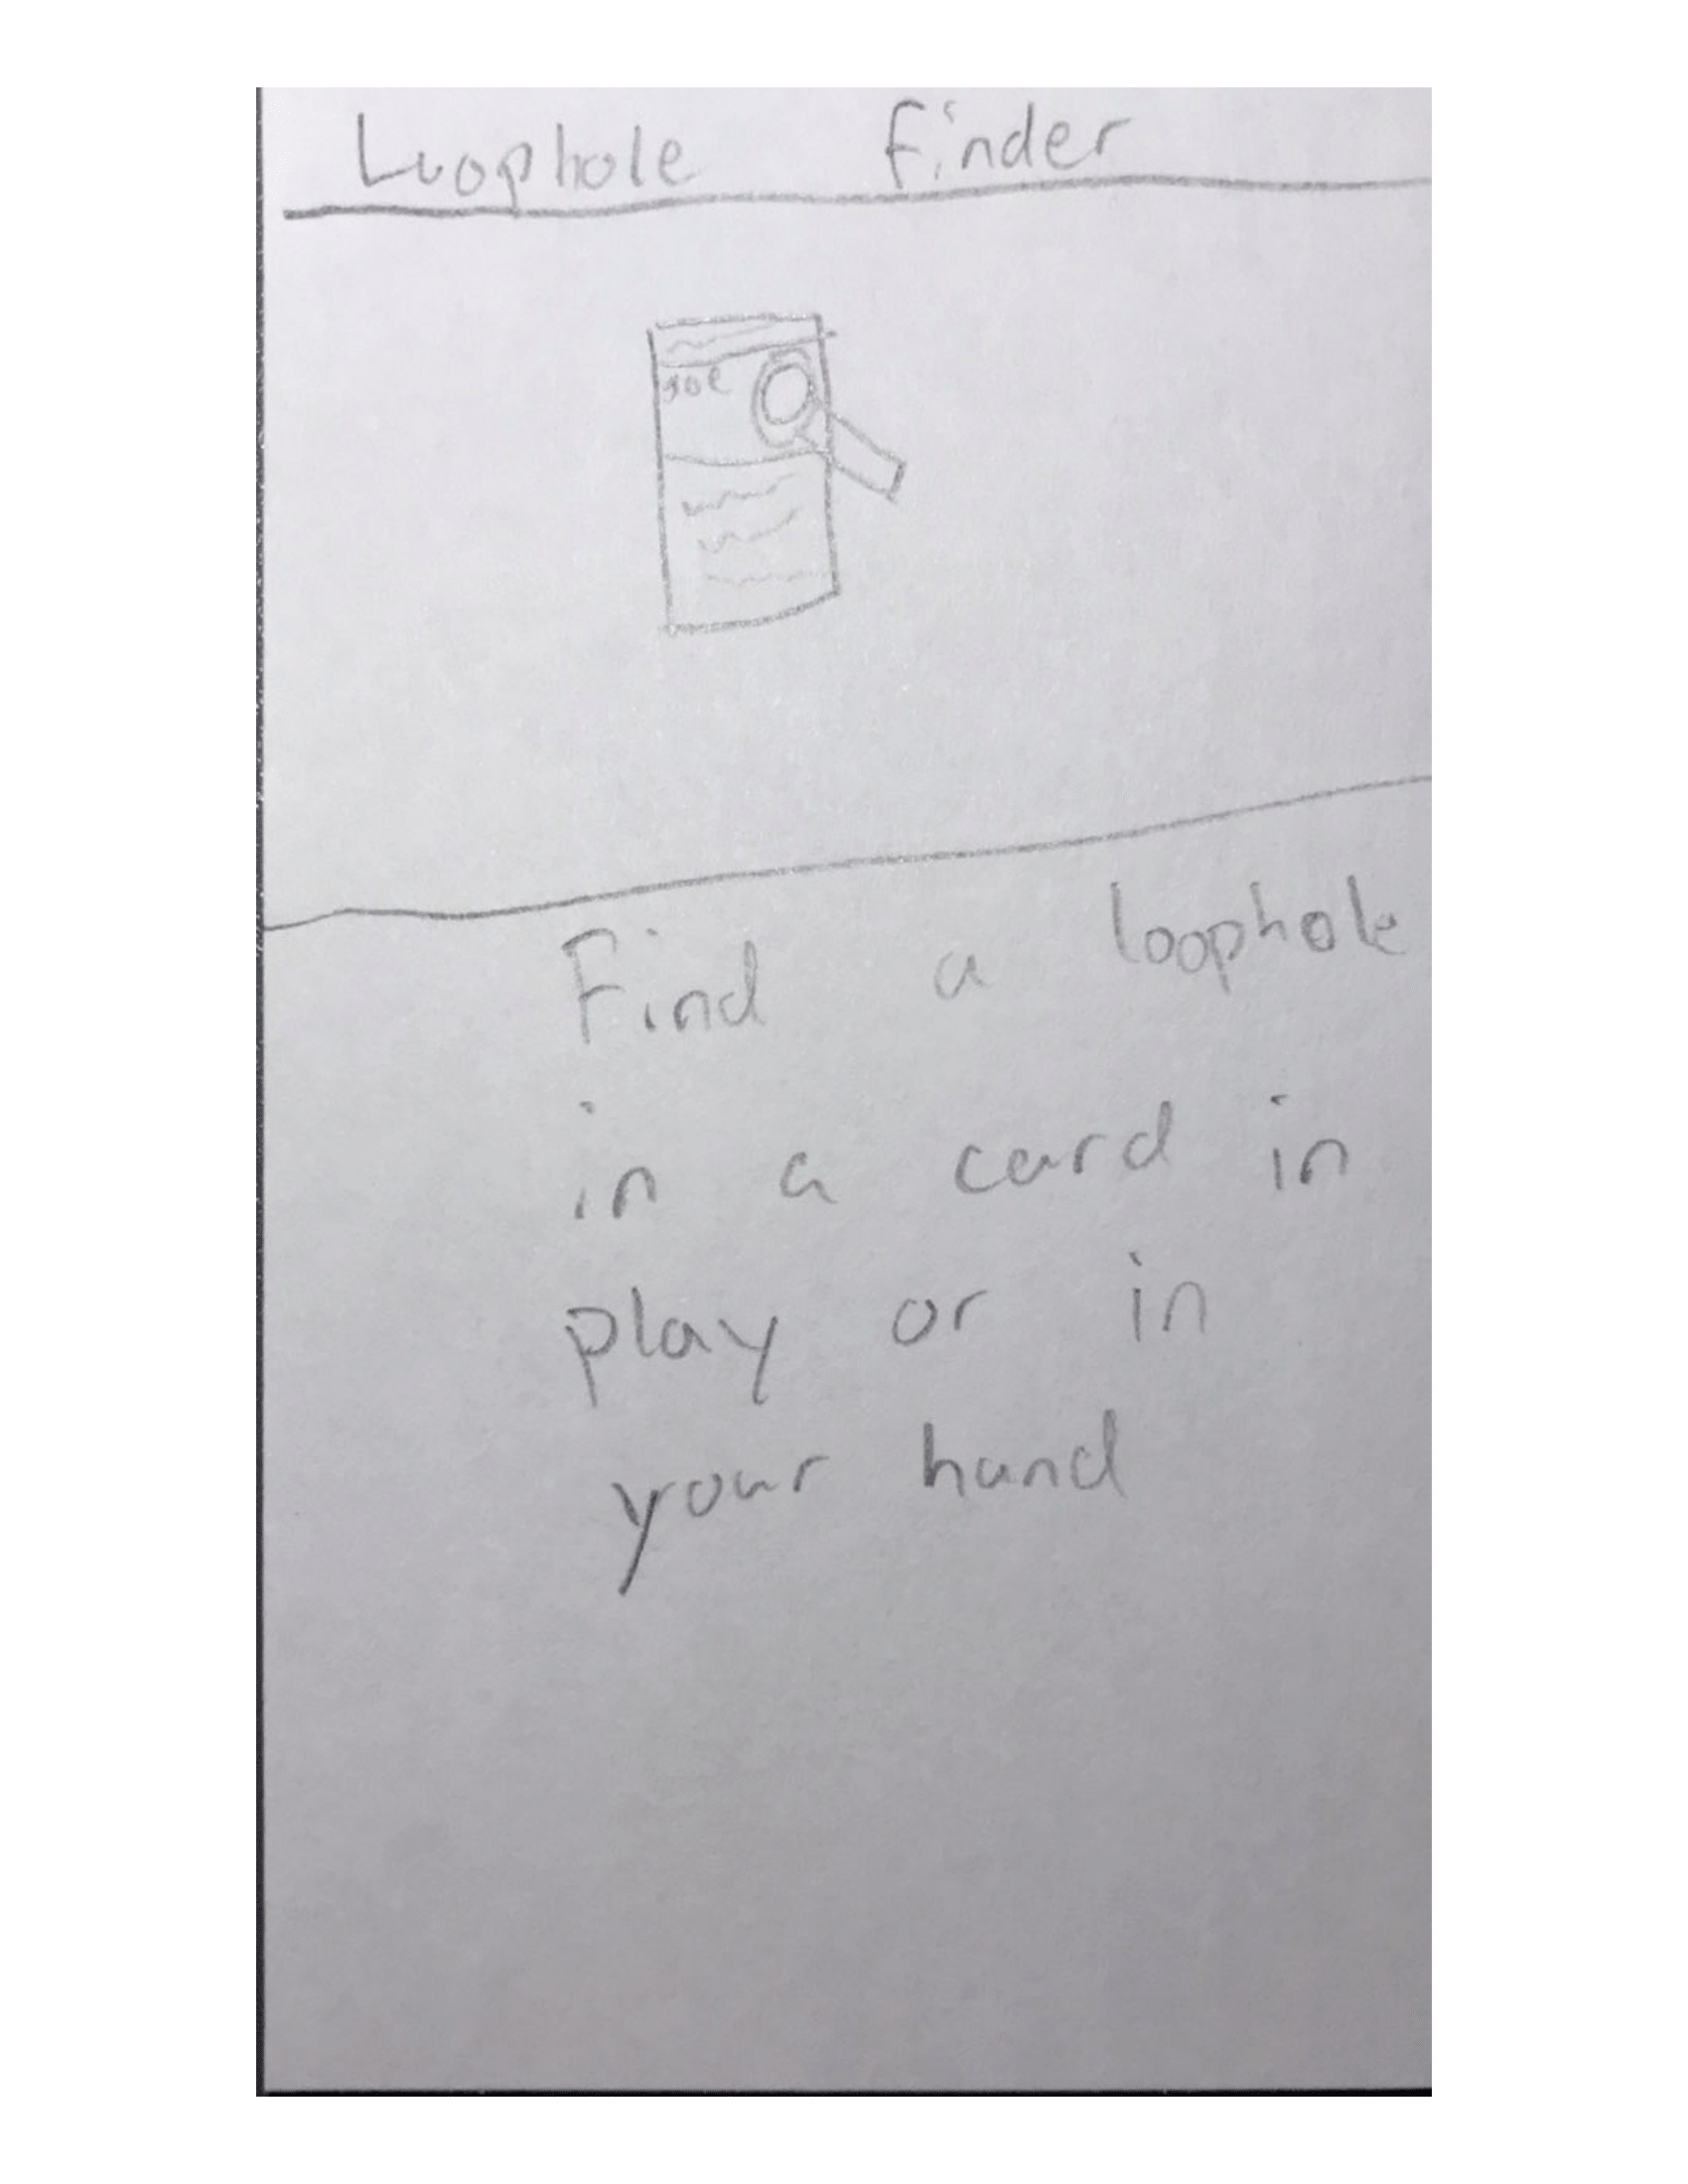 Loophole finder
Find a loophole
in a card in
play or in
your hand